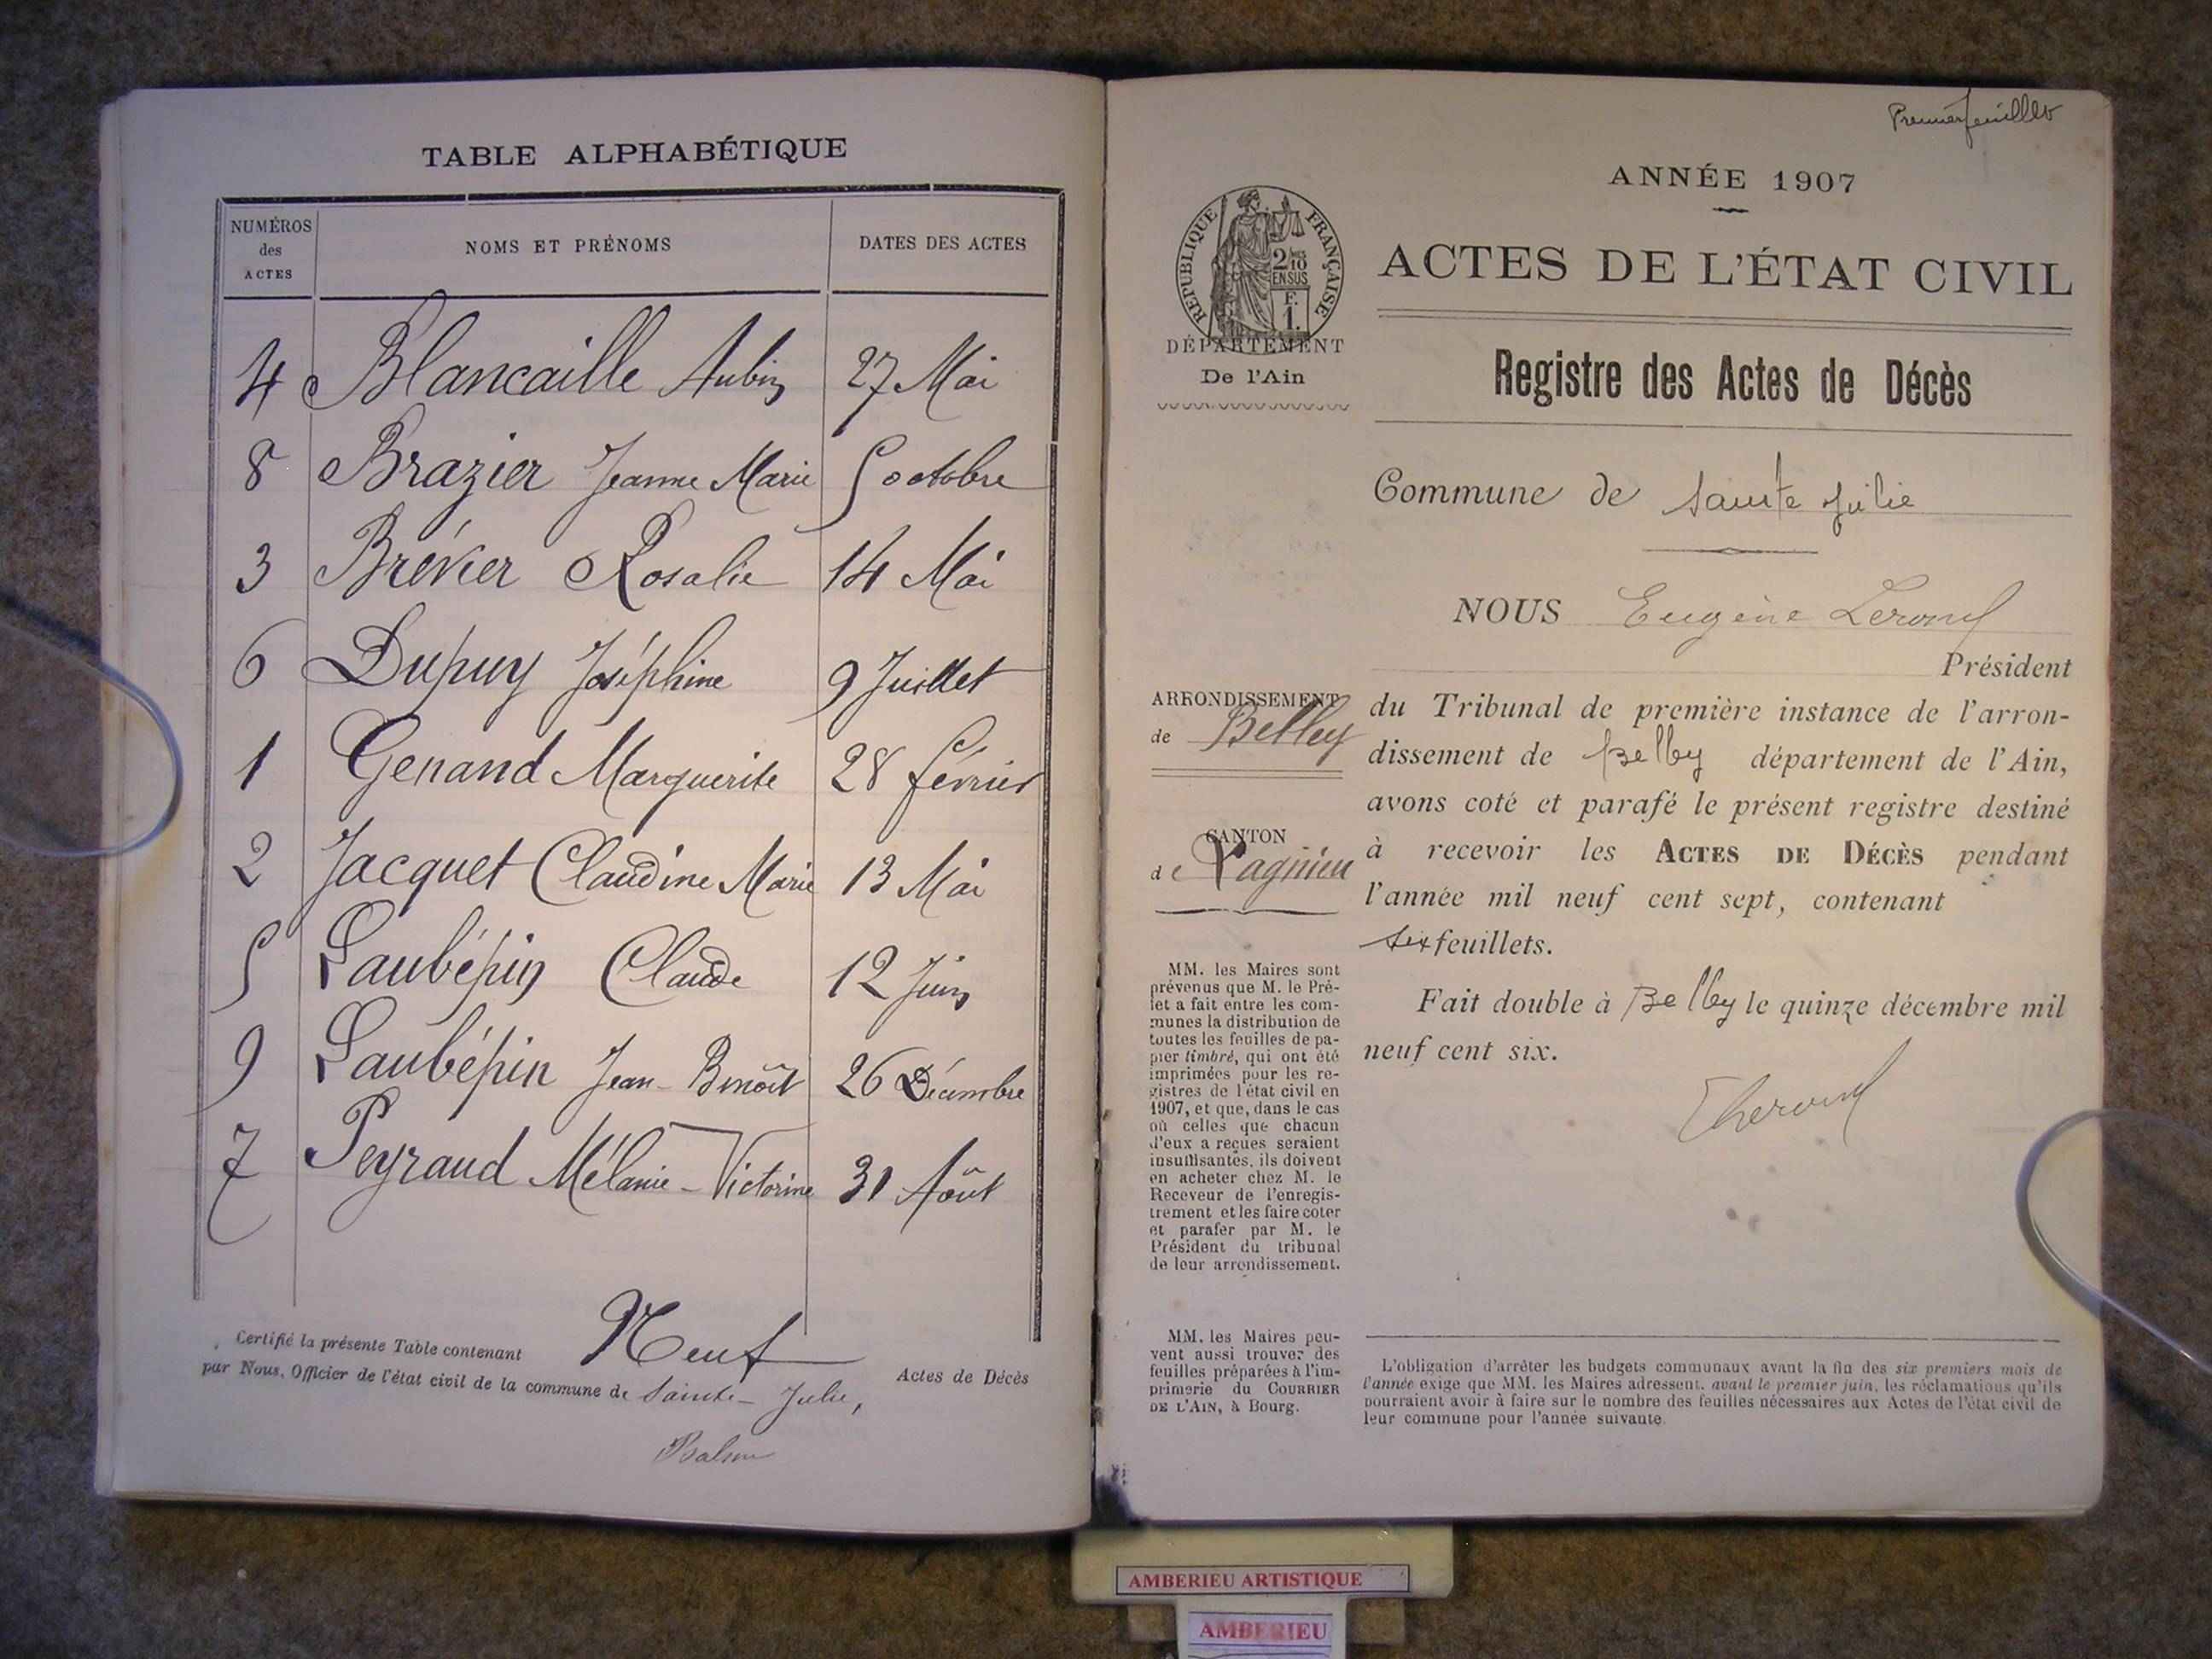 TABLE ALPHABÉTIQUE
NUMÉROS des ACTES
NOMS ET PRÉNOMS
DATES DES ACTES
4 Blancaille Aubin 27 Mai
8 Brazier Jeanne Marie 5 octobre
3 Brévier Rosalie 14 Mai
6 Dupuy Joséphine 9 Juillet
1 Genand Marguerite 28 février
2 Jacquet Claudine Marie 13 Mai
5 Laubépin Claude 12 Juin
9 Laubépin Jean-Benoît 26 Décembre
7 Peyraud Mélanie-Victorine 31 Août
Certifié la présente Table contenant Neuf Actes de Décès
par Nous, Officier de l'état civil de la commune de Sainte-Julie,
Premier feuillet
ANNÉE 1907
RÉPUBLIQUE FRANÇAISE
2/10
EN SUS
F.
1.
DÉPARTEMENT
De l'Ain
ACTES DE L'ÉTAT CIVIL
Registre des Actes de Décès
Commune de Sainte Julie
NOUS Eugène
Président
ARRONDISSEMENT
de Belley
CANTON
de Lagnieu
du Tribunal de première instance de l'arron-
dissement de Belley département de l'Ain,
avons coté et parafé le présent registre destiné
à recevoir les ACTES DE DÉCÈS pendant
l'année mil neuf cent sept, contenant
six feuillets.
Fait double à Belley le quinze décembre mil
neuf cent six.
MM. les Maires sont
prévenus que M. le Pré-
fet a fait entre les com-
munes la distribution de
toutes les feuilles de pa-
pier timbré, qui ont été
imprimées pour les re-
gistres de l'état civil en
1907, et que, dans le cas
où celles que chacun
d'eux a reçues seraient
insuffisantes, ils doivent
en acheter chez M. le
Receveur de l'enregis-
trement et les faire coter
et parafer par M. le
Président du tribunal
de leur arrondissement.
MM. les Maires peu-
vent aussi trouver des
feuilles préparées à l'im-
primerie du COURRIER
DE L'AIN, à Bourg.
L'obligation d'arrêter les budgets communaux avant la fin des six premiers mois de
l'année exige que MM. les Maires adressent, avant le premier juin, les réclamations qu'ils
pourraient avoir à faire sur le nombre des feuilles nécessaires aux Actes de l'état civil de
leur commune pour l'année suivante.
AMBERIEU ARTISTIQUE
AMBERIEU